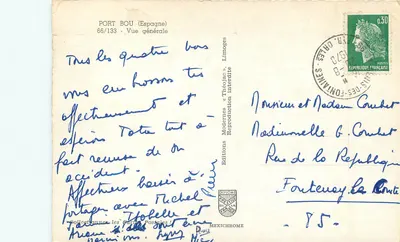 PORT BOU (Espagne)
66/133 - Vue générale
Tous les quatre bons
vous embrassons très
affectueusement et
espérons Tata tout à
fait remise de son
accident.
Affectueux baisers à
partager avec Michel
Isabelle et
Editions Modernes « Théojac » Limoges
Reproduction interdite
MEXICHROME
0,30
REPUBLIQUE FRANÇAISE
Monsieur et Madame Combet
Mademoiselle G. Combet
Rue de la République
Fontenay le Comte
- 85 -